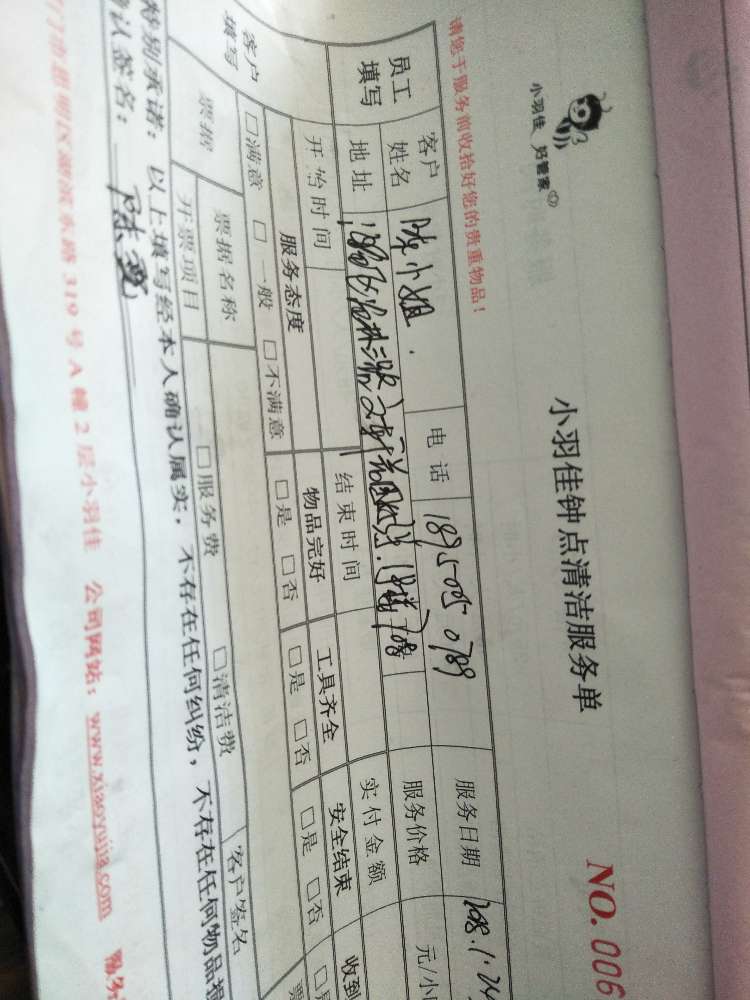 小羽佳 好管家
小羽佳钟点清洁服务单
NO.006
请您于服务前收拾好您的贵重物品!
员工填写 客户姓名 陈小姐 电话 189 5050 0789 服务日期 2018.1.24
地址 708 服务价格 元/小
开始时间 结束时间 实付金额
客户填写 服务态度 物品完好 工具齐全 安全结束 收到
□满意 □一般 □不满意 □是 □否 □是 □否 □是 □否
票据 票据名称 □服务费 □清洁费 客户签名
开票项目
特别承诺:以上填写经本人确认属实,不存在任何纠纷,不存在任何物品损
确认签名:
门市思明区湖滨东路319号A幢2层小羽佳 公司网站:www.xiaoyujia.com 服务